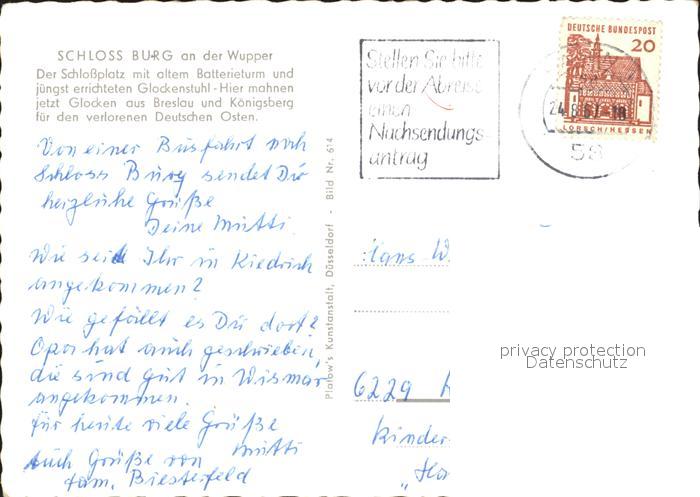 SCHLOSS BURG an der Wupper
Der Schloßplatz mit altem Batterieturm und
jüngst errichteten Glockenstuhl - Hier mahnen
jetzt Glocken aus Breslau und Königsberg
für den verlorenen Deutschen Osten.
Von einer Busfahrt nach
Schloss Burg sendet Dir
herzliche Grüße
Deine Mutti.
Wie seid Ihr in Kiedrich
angekommen?
Wie gefällt es Dir dort?
Opa hat auch geschrieben,
die sind gut in Wismar
angekommen.
Für heute viele Grüße
Mutti
Auch Grüße von
Fam. Biesterfeld
Platow's Kunstanstalt, Düsseldorf - Bild Nr. 614
Stellen Sie bitte
vor der Abreise
einen
Nachsendungs-
antrag
DEUTSCHE BUNDESPOST
20
LORSCH/HESSEN
24.8.67-18
58
Hans W
6229
Kinder-
privacy protection
Datenschutz